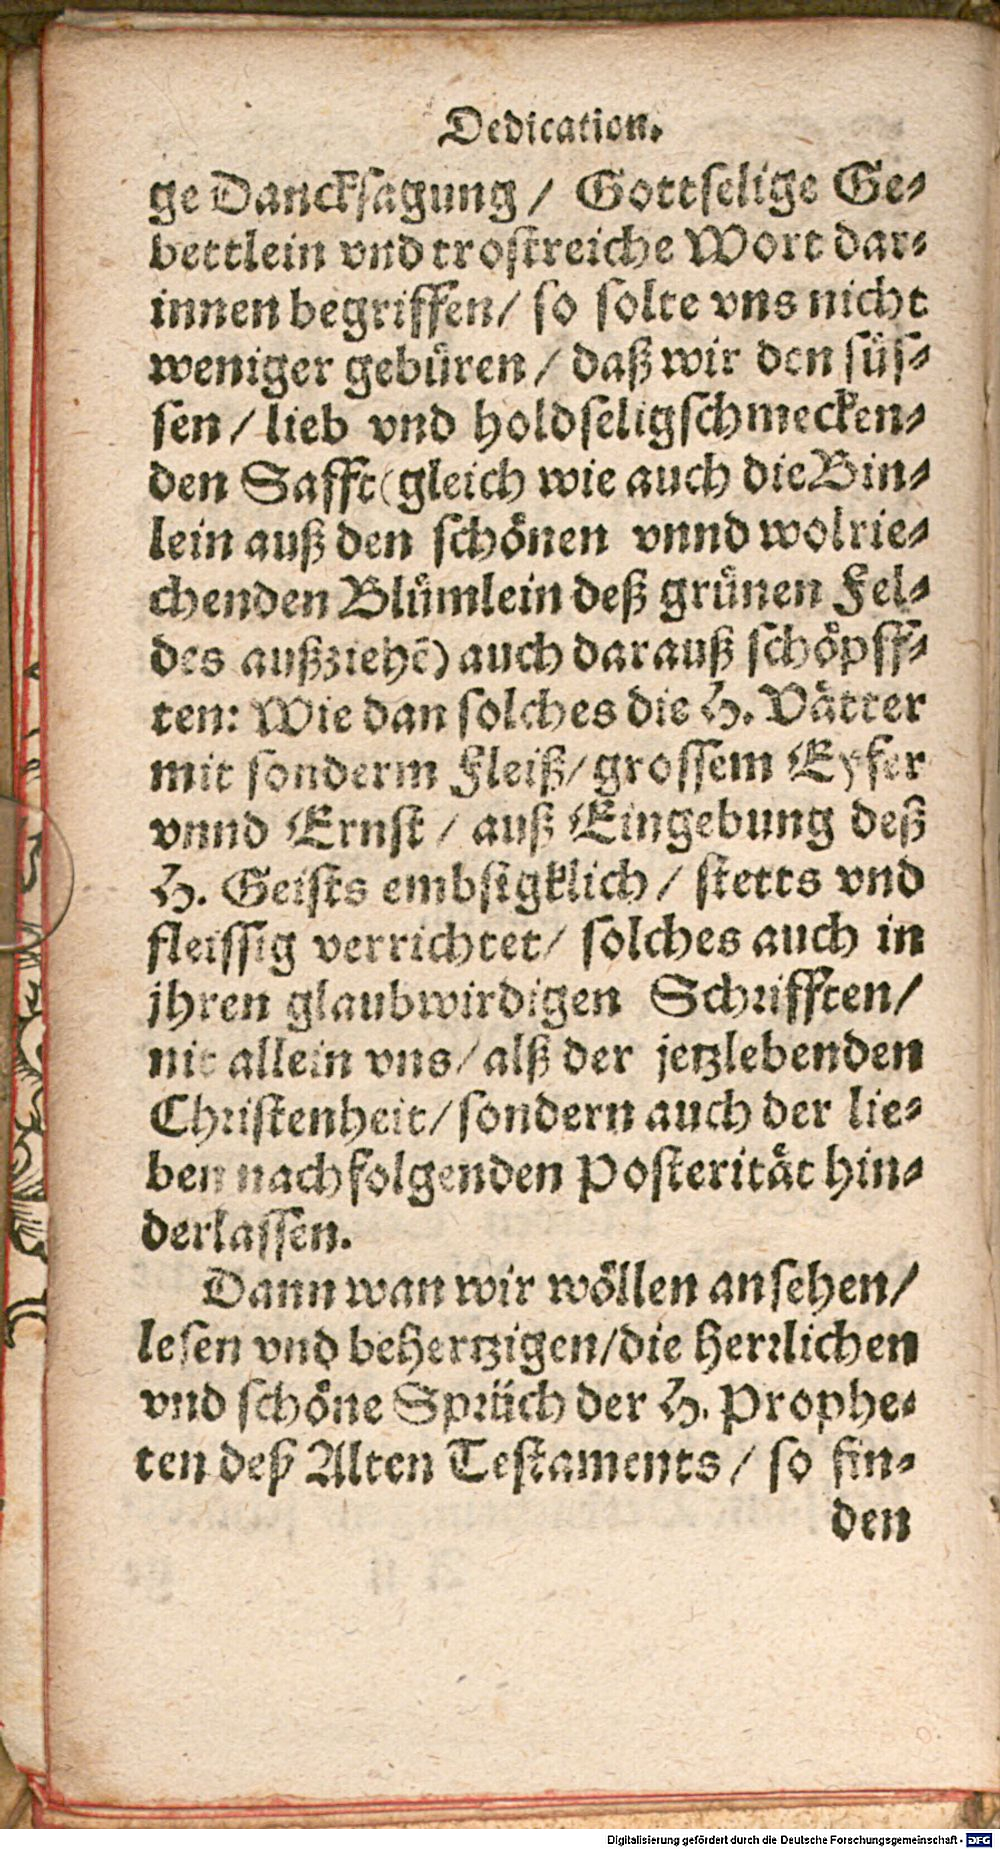 Dedication.
ge Dancksagung / Gottselige Ge-
bettlein vnd trostreiche Wort dar-
innen begriffen / so solte vns nicht
weniger gebüren / daß wir den süs-
sen / lieb vnd holdseligschmecken-
den Safft (gleich wie auch die Bin-
lein auß den schönen vnnd wolrie-
chenden Blümlein deß grünen Fel-
des außziehẽ) auch darauß schöpff-
ten: Wie dan solches die H. Vätter
mit sonderm Fleiß / grossem Eyfer
vnnd Ernst / auß Eingebung deß
H. Geists embsigklich / stetts vnd
fleissig verrichtet / solches auch in
jhren glaubwirdigen Schrifften /
nit allein vns / alß der jetzlebenden
Christenheit / sondern auch der lie-
ben nachfolgenden Posteritât hin-
derlassen.
Dann wan wir wöllen ansehen /
lesen vnd behertzigen / die herrlichen
vnd schöne Sprüch der H. Prophe-
ten deß Alten Testaments / so fin-
den
Digitalisierung gefördert durch die Deutsche Forschungsgemeinschaft - DFG